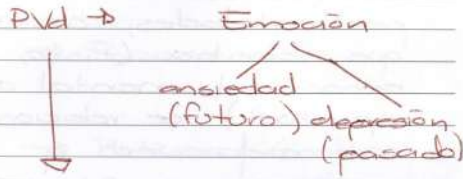 PVd → Emoción
ansiedad
(futuro) depresión
(pasado)